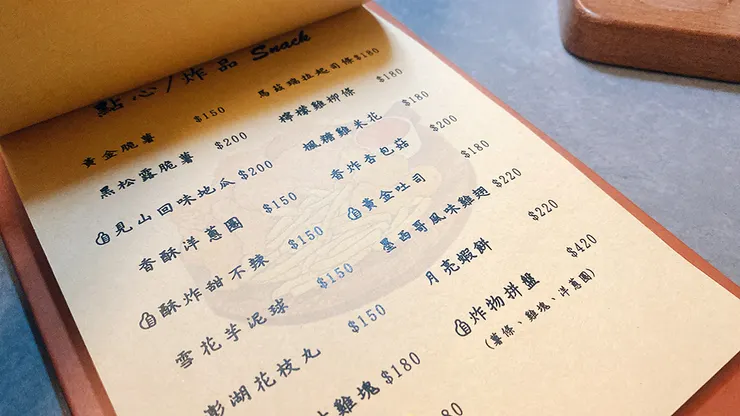 點心/炸品 Snack
黃金脆薯 $150
黑松露脆薯 $200
見山回味地瓜 $200
香酥洋蔥圈 $150
酥炸甜不辣 $150
雪花芋泥球 $150
澎湖花枝丸 $150
雞塊 $180
馬茲瑞拉起司條 $180
檸檬雞柳條 $180
楓糖雞米花 $180
香炸杏包菇 $200
黃金吐司 $180
墨西哥風味雞翅 $220
月亮蝦餅 $220
炸物拼盤 $420
(薯條、雞塊、洋蔥圈)